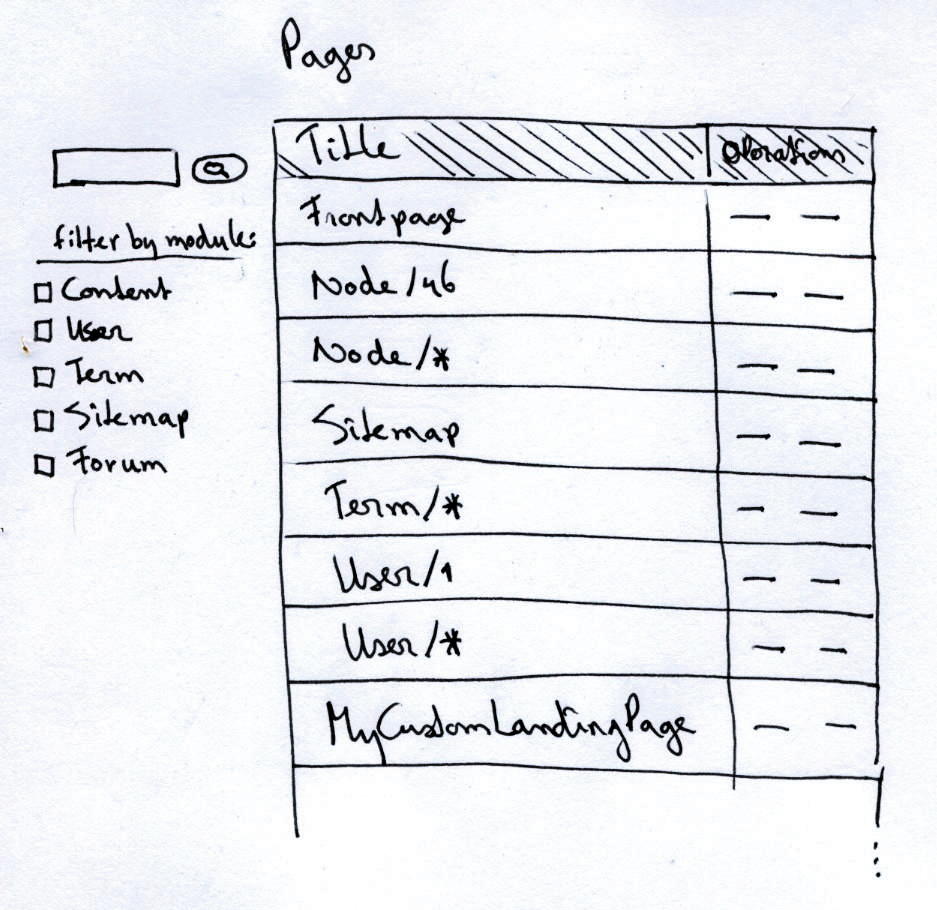 Pages
Title Operations
filter by module:
Content
User
Term
Sitemap
Forum
Frontpage
Node/46
Node/*
Sitemap
Term/*
User/1
User/*
MyCustomLandingPage